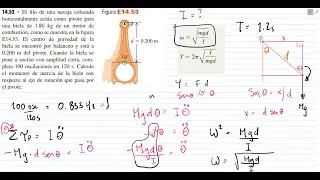 14.53 • El filo de una navaja colocada
horizontalmente actúa como pivote para
una biela de 1.80 kg de un motor de
combustión, como se muestra en la figura
E14.53. El centro de gravedad de la
biela se encontró por balanceo y está a
0.200 m del pivote. Cuando la biela se
pone a oscilar con amplitud corta,
completa 100 oscilaciones en 120 s. Calcule
el momento de inercia de la biela con
respecto al eje de rotación que pasa por
el pivote.
Figura E14.53
d = 0.200 m
I = ?
ω = √(mgd/I)
T = 2π√(I/mgd)
T = 1.2s
τ = F·d
sen θ ≈ θ
Sen θ = x/d
d
x
Mg
100 osc/120s = 0.833 Hz = f
Σ τp = I θ̈
− Mg·d sen θ = I θ̈
− Mgd θ = I θ̈
− Mgd/I θ = θ̈
ω² = Mgd/I
ω = √(Mgd/I)